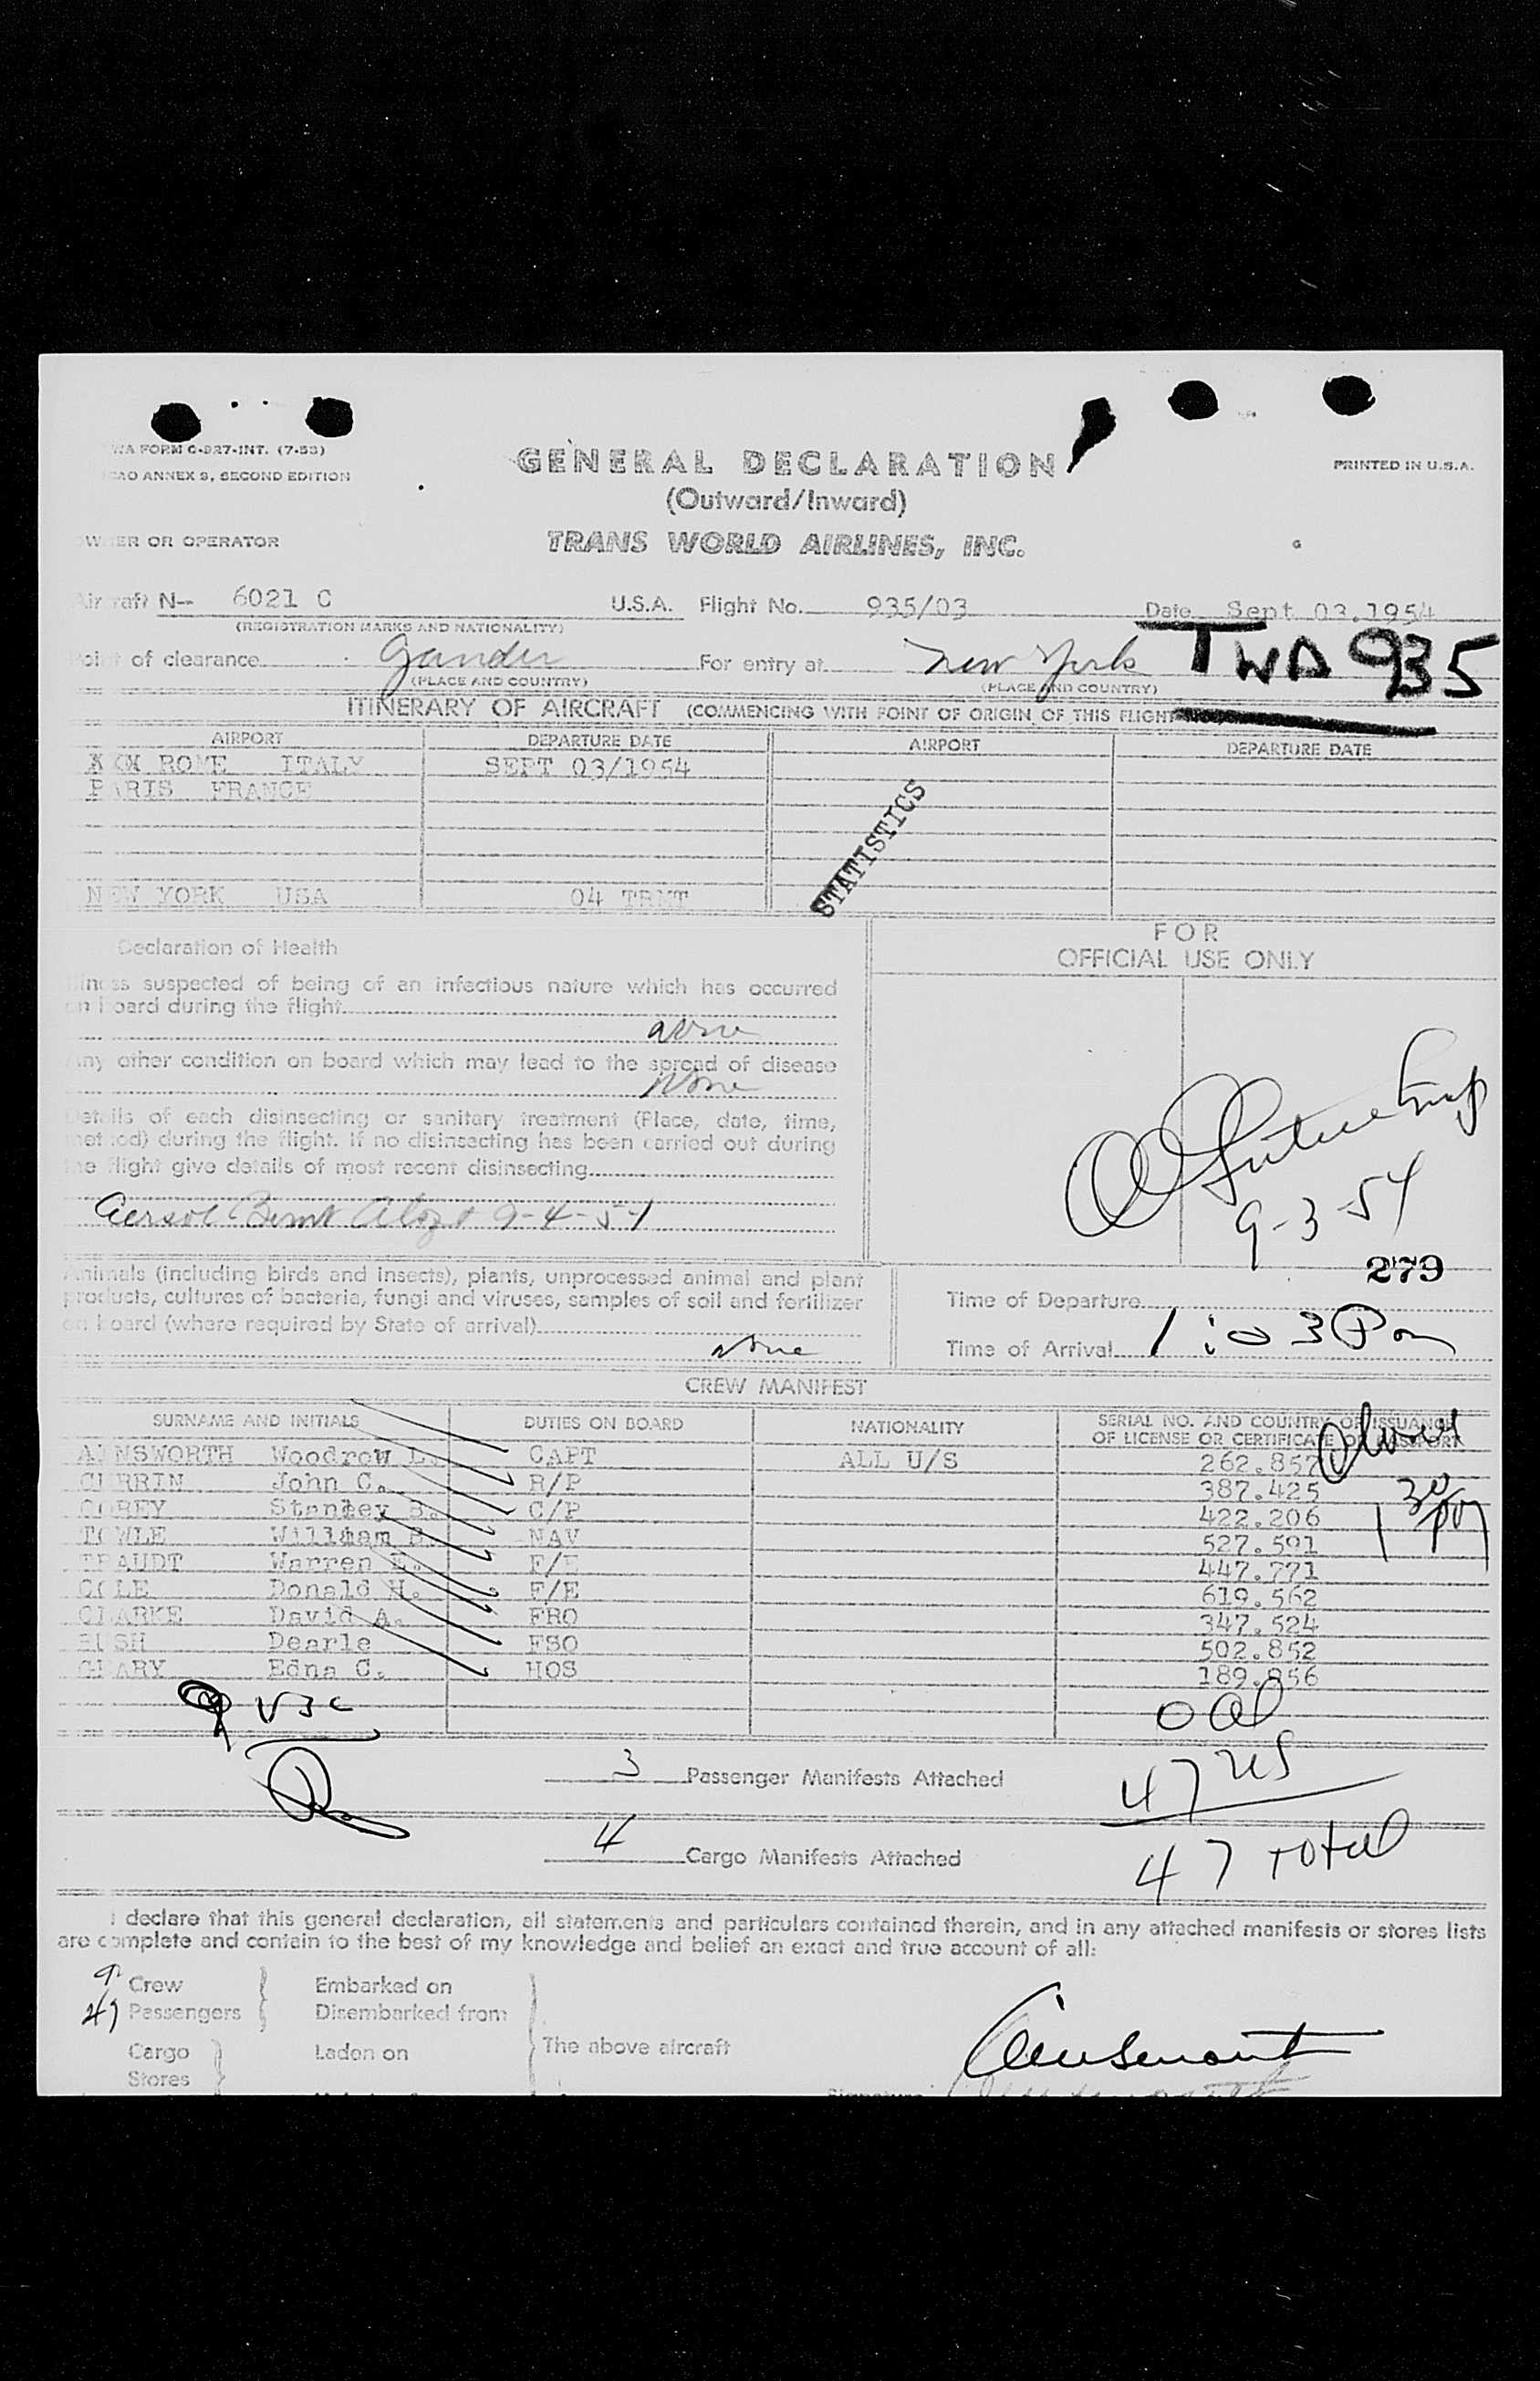 WA FORM C-927-INT. (7-53)
CAO ANNEX 9, SECOND EDITION
GENERAL DECLARATION
(Outward/Inward)
PRINTED IN U.S.A.
OWNER OR OPERATOR
TRANS WORLD AIRLINES, INC.
Aircraft N- 6021 C U.S.A. Flight No. 935/03 Date Sept 03.1954
(REGISTRATION MARKS AND NATIONALITY)
Point of clearance Gander For entry at New York TWA 935
(PLACE AND COUNTRY) (PLACE AND COUNTRY)
ITINERARY OF AIRCRAFT (COMMENCING WITH POINT OF ORIGIN OF THIS FLIGHT
AIRPORT DEPARTURE DATE AIRPORT DEPARTURE DATE
ROME ITALY SEPT 03/1954
PARIS FRANCE
STATISTICS
NEW YORK USA 04 TRMT
Declaration of Health
FOR
OFFICIAL USE ONLY
Illness suspected of being of an infectious nature which has occurred
on board during the flight
none
Any other condition on board which may lead to the spread of disease
None
Details of each disinsecting or sanitary treatment (Place, date, time,
method) during the flight. If no disinsecting has been carried out during
the flight give details of most recent disinsecting
9-4-54
9-3-54
279
Animals (including birds and insects), plants, unprocessed animal and plant
products, cultures of bacteria, fungi and viruses, samples of soil and fertilizer
on board (where required by State of arrival)
none
Time of Departure
Time of Arrival 1:03 Pm
CREW MANIFEST
SURNAME AND INITIALS DUTIES ON BOARD NATIONALITY SERIAL NO. AND COUNTRY OF ISSUANCE
OF LICENSE OR CERTIFICATE OR PASSPORT
AINSWORTH Woodrow L. CAPT ALL U/S 262.857
CURRIN John C. R/P 387.425
COREY Stanley B. C/P 422.206
TOWLE William S. NAV 527.591
TRAUDT Warren E. F/E 447.771
COLE Donald H. F/E 619.562
CLARKE David A. FRO 347.524
Dearle FSO 502.852
Edna C. HOS 189.856
1 30 pm
9 USC
0 al
3 Passenger Manifests Attached
47 US
4 Cargo Manifests Attached
47 total
I declare that this general declaration, all statements and particulars contained therein, and in any attached manifests or stores lists
are complete and contain to the best of my knowledge and belief an exact and true account of all:
9 Crew Embarked on
47 Passengers Disembarked from
Cargo Laden on The above aircraft
Stores
Signature